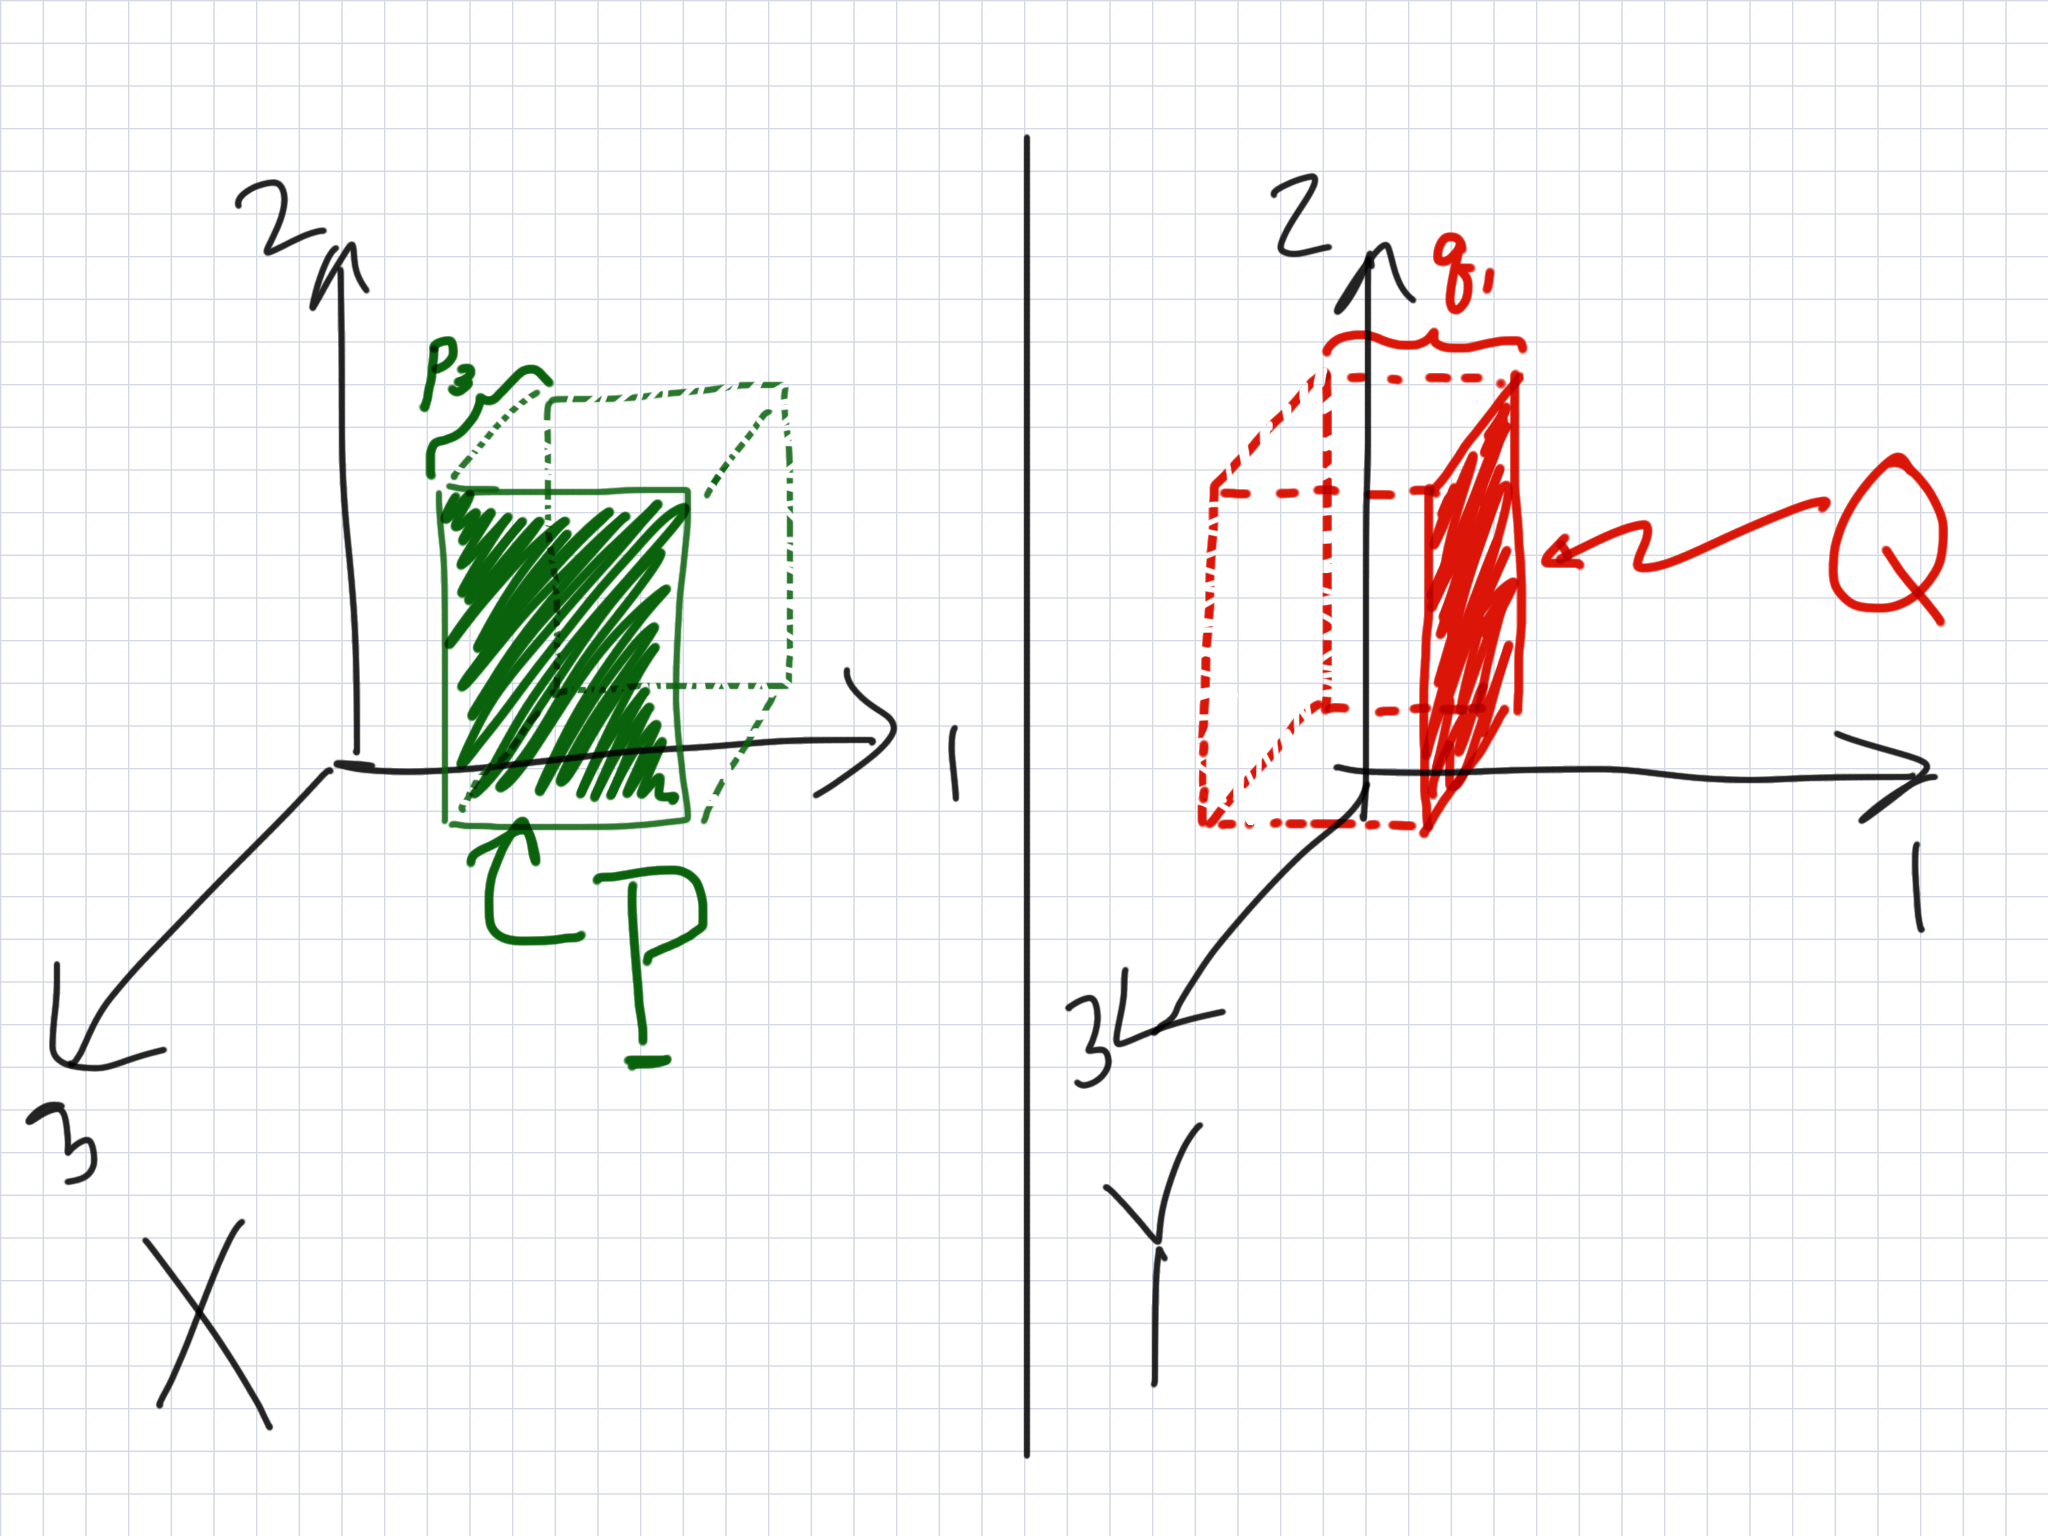 2
P3
1
P
3
X
2
q1
Q
1
3
Y